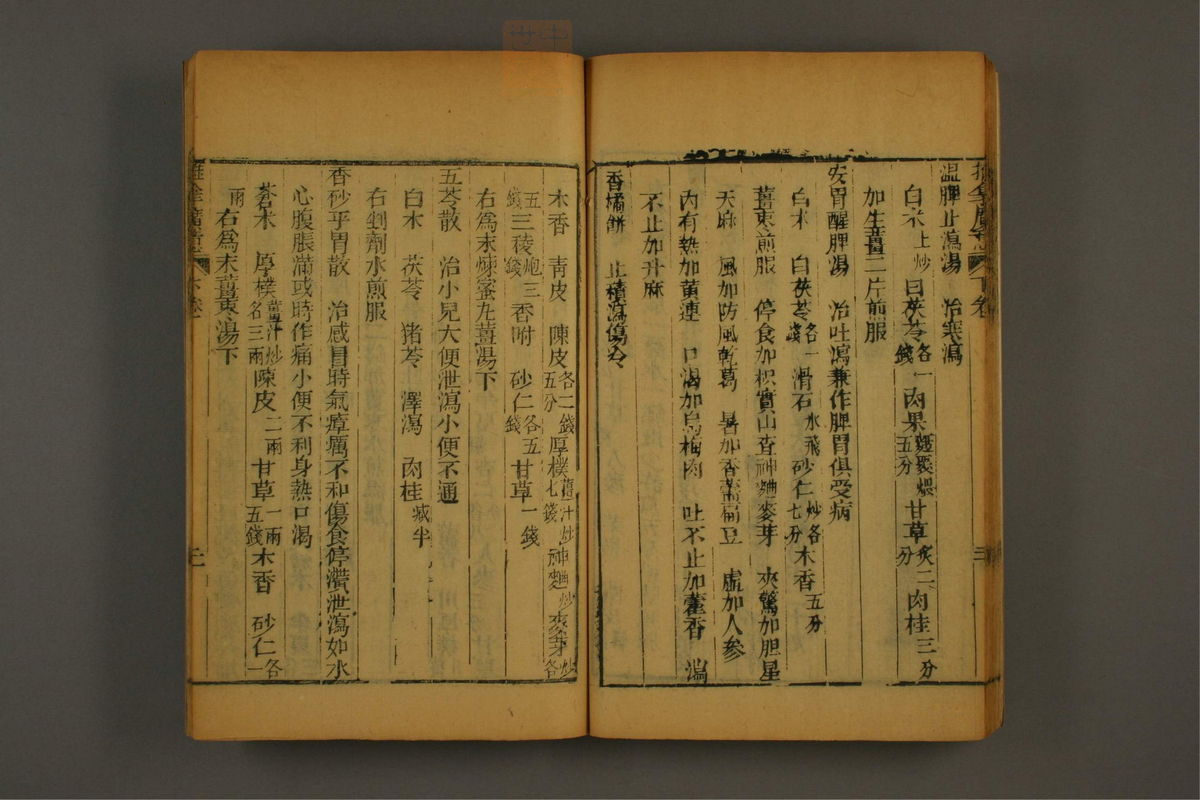 溫脾止瀉湯　治寒瀉
白朮土炒　白茯苓各一錢　肉果麵裹煨五分　甘草炙二分　肉桂三分
加生薑二片煎服
安胃醒脾湯　治吐瀉兼作脾胃俱受病
白朮　白茯苓各一錢　滑石水飛　砂仁炒各七分　木香五分
薑棗煎服　停食加枳實山查神麯麥芽　夾驚加胆星
天麻　風加防風乾葛　暑加香薷扁豆　虛加人參
內有熱加黄連　口渴加烏梅肉　吐不止加藿香　瀉
不止加升麻
香橘餅　止積瀉傷冷
木香　青皮　陳皮各二錢五分　厚樸薑汁炒七錢　神麯炒　麥芽炒各
五錢　三稜炮三錢　香附　砂仁各五錢　甘草一錢
右爲末煉蜜丸薑湯下
五苓散　治小兒大便泄瀉小便不通
白朮　茯苓　猪苓　澤瀉　肉桂減半
右剉劑水煎服
香砂平胃散　治感冒時氣瘴癘不和傷食停滯泄瀉如水
心腹脹滿或時作痛小便不利身熱口渴
蒼朮　厚樸薑汁炒各三兩　陳皮二兩　甘草一兩五錢　木香　砂仁各一
兩　右爲末薑棗湯下